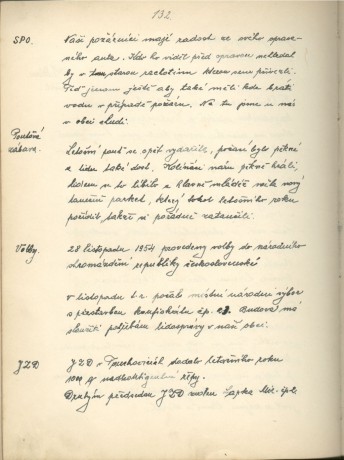 132
SPO. Naši požárníci mají radost ze svého sprave-
ného auta. Kdo ho viděl před opravou nehledal
by v tom starou rachotinu kterou sem přivezli.
Teď jenom ještě aby také měli kde brát
vodu v případě požáru. Na tu jsme u nás
v obci chudí.
Pouťová
zábava.
Letošní pouť se opět vydařila, počasí bylo pěkné
a lidu také dost. Kolínáci nám pěkně hráli,
všem se to líbilo a hlavně mládeži náš nový
taneční parket, který letošního roku
pořídil, takže si pořádně zatančili.
Volby 28 listopadu 1954 provedeny volby do národního
shromáždění republiky československé
V listopadu t.r. počal místní národní výbor
s přestavbou konfiskátu čp. Budova má
sloužiti potřebám lidosprávy v naší obci.
JZD JZD v dodalo letošního roku
řepy.
Druhým předsedou JZD zvolen čp.